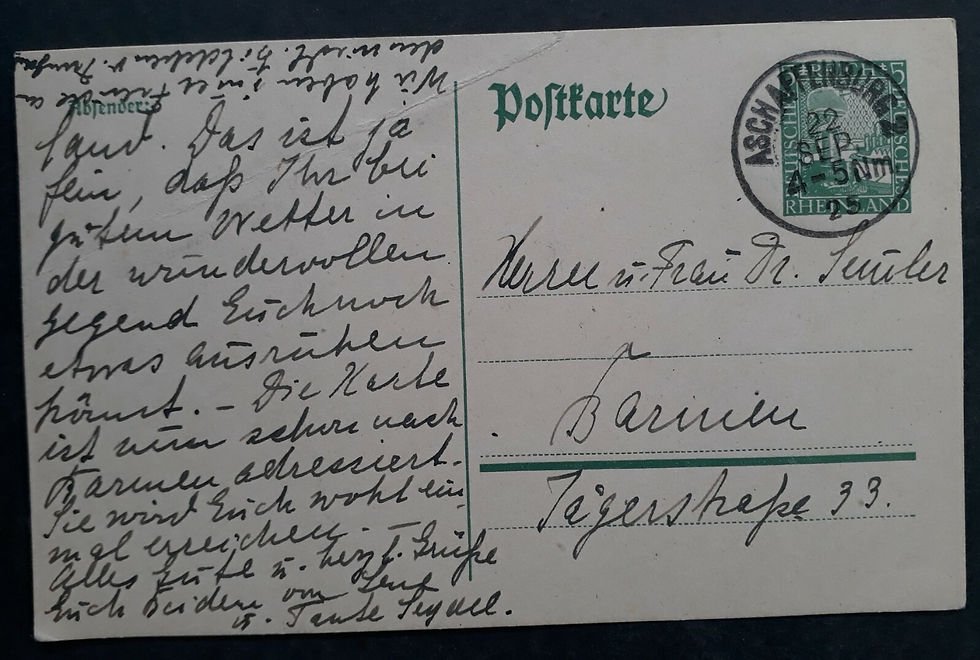 Postkarte
ASCHAFFENBURG 2
22
SEP.
4-5 Nm
25
5
DEUTSCHES
RHEINLAND
Herrn u. Frau Dr.
Barmen
Jägerstraße 33.
Absender:
Wir haben
land. Das ist ja
fein, daß Ihr bei
gutem Wetter in
der wundervollen
Gegend Euch noch
etwas ausruhen
könnt. – Die Karte
ist nun schon nach
Barmen adressiert.
Sie wird Euch wohl ein
mal erreichen. –
Alles Gute u. herzl. Grüße
Euch Beiden von Lene
u. Tante